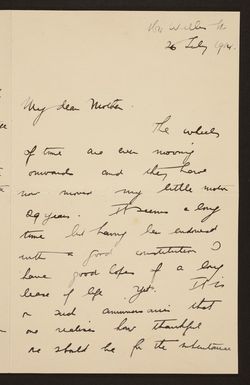 26 July 1914.
My dear Mother.
The wheels
of time are ever moving
onwards and they have
now moved my little motor
29 years. It seems a long
time but having been endowed
with a good constitution I
have good hopes of a long
lease of life yet. It is
on such anniversaries that
one realises how thankful
one should be for the inheritance